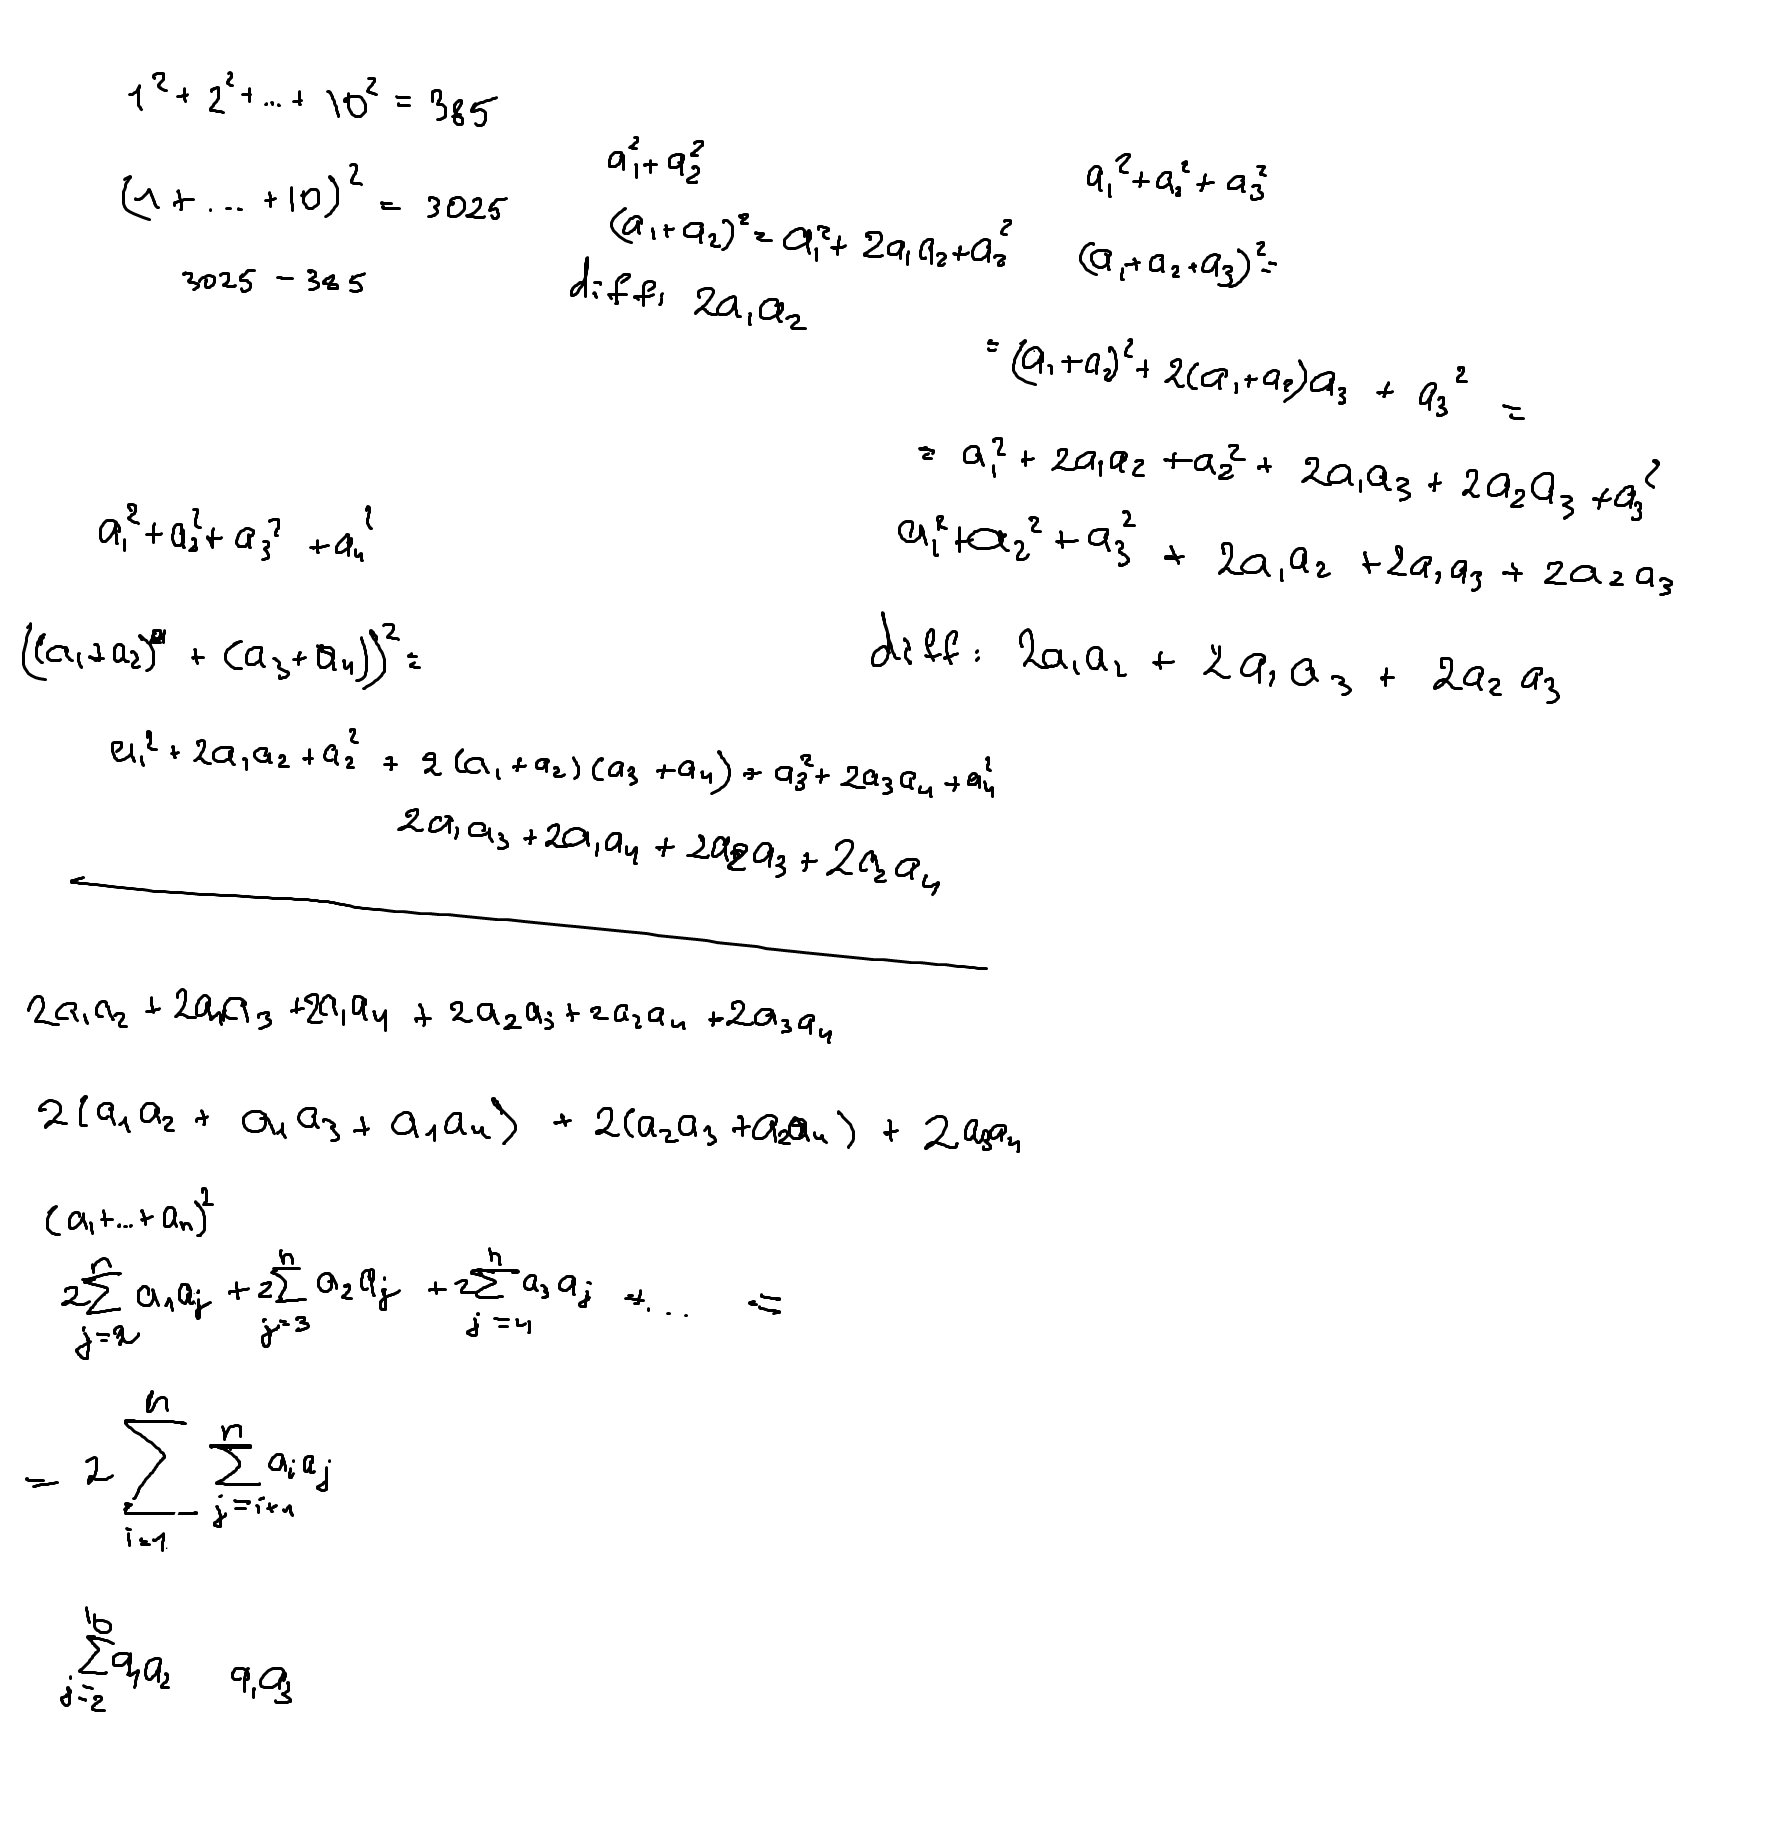 1² + 2² + ... + 10² = 385
(1 + ... + 10)² = 3025
3025 - 385
a₁² + a₂²
(a₁ + a₂)² = a₁² + 2a₁a₂ + a₂²
diff: 2a₁a₂
a₁² + a₂² + a₃²
(a₁ + a₂ + a₃)² =
= (a₁ + a₂)² + 2(a₁ + a₂)a₃ + a₃² =
= a₁² + 2a₁a₂ + a₂² + 2a₁a₃ + 2a₂a₃ + a₃²
a₁² + a₂² + a₃² + 2a₁a₂ + 2a₁a₃ + 2a₂a₃
diff: 2a₁a₂ + 2a₁a₃ + 2a₂a₃
a₁² + a₂² + a₃² + a₄²
((a₁ + a₂) + (a₃ + a₄))² =
a₁² + 2a₁a₂ + a₂² + 2(a₁ + a₂)(a₃ + a₄) + a₃² + 2a₃a₄ + a₄²
2a₁a₃ + 2a₁a₄ + 2a₂a₃ + 2a₂a₄
2a₁a₂ + 2a₁a₃ + 2a₁a₄ + 2a₂a₃ + 2a₂a₄ + 2a₃a₄
2(a₁a₂ + a₁a₃ + a₁a₄) + 2(a₂a₃ + a₂a₄) + 2a₃a₄
(a₁ + ... + aₙ)²
2∑_{j=2}^{n} a₁aⱼ + 2∑_{j=3}^{n} a₂aⱼ + 2∑_{j=4}^{n} a₃aⱼ + ... =
= 2∑_{i=1}^{n} ∑_{j=i+1}^{n} aᵢaⱼ
∑_{j=2}^{10} a₁a₂ a₁a₃